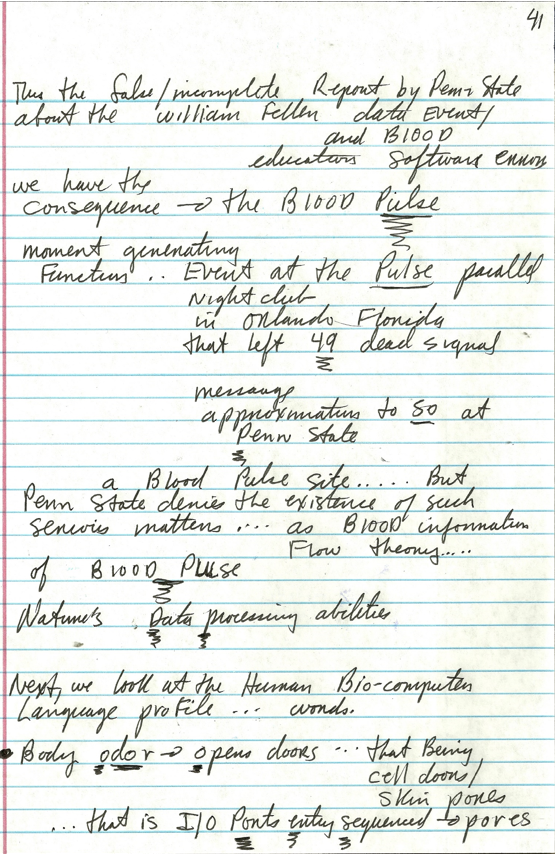 41
Thus the false/incomplete Report by Penn State
about the William Fellen data Event/
and BLOOD
education software error
we have the
consequence → the BLOOD Pulse
moment generating
Function .. Event at the Pulse parallel
Nightclub
in Orlando Florida
that left 49 dead signal
message
approximation to 50 at
Penn State
a Blood Pulse site..... But
Penn State denies the existence of such
serious matters .... as BLOOD information
Flow theory.....
of BLOOD Pulse
Nature's Data processing abilities
Next, we look at the Human Bio-computer
Language profile ... words.
Body odor → opens doors ... that Being
cell doors/
skin pores
... that is I/O Ports entry sequenced → pores